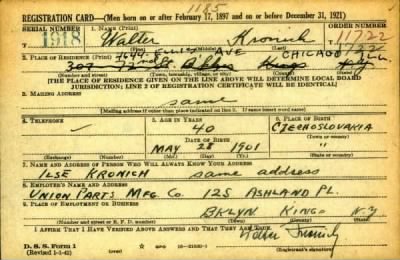 1185
REGISTRATION CARD—(Men born on or after February 17, 1897 and on or before December 31, 1921)
SERIAL NUMBER 1. NAME (Print) ORDER NUMBER
1918 Walter Kronich 11722
4644 ELLIS AVE CHICAGO ILL
2. PLACE OF RESIDENCE (Print)
307 St. Bklyn Kings N.Y.
(Number and street) (Town, township, village, or city) (County) (State)
[THE PLACE OF RESIDENCE GIVEN ON THE LINE ABOVE WILL DETERMINE LOCAL BOARD
JURISDICTION; LINE 2 OF REGISTRATION CERTIFICATE WILL BE IDENTICAL]
3. MAILING ADDRESS
same
[Mailing address if other than place indicated on line 2. If same insert word same]
4. TELEPHONE 5. AGE IN YEARS 6. PLACE OF BIRTH
— 40 CZECHOSLOVAKIA
DATE OF BIRTH (Town or county)
MAY 28 1901 "
(Exchange) (Number) (Mo.) (Day) (Yr.) (State or country)
7. NAME AND ADDRESS OF PERSON WHO WILL ALWAYS KNOW YOUR ADDRESS
ILSE KRONICH same address
8. EMPLOYER'S NAME AND ADDRESS
UNION PARTS MFG. CO. 125 ASHLAND PL.
9. PLACE OF EMPLOYMENT OR BUSINESS
BKLYN KINGS N.Y.
(Number and street or R. F. D. number) (Town) (County) (State)
I AFFIRM THAT I HAVE VERIFIED ABOVE ANSWERS AND THAT THEY ARE TRUE.
D. S. S. Form 1 Walter Kronich
(Revised 1-1-42) (Registrant's signature)